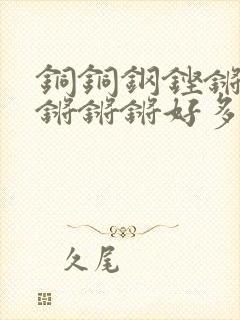 銅銅鋼鏗鏘
鏘鏘鏘好多
久尾